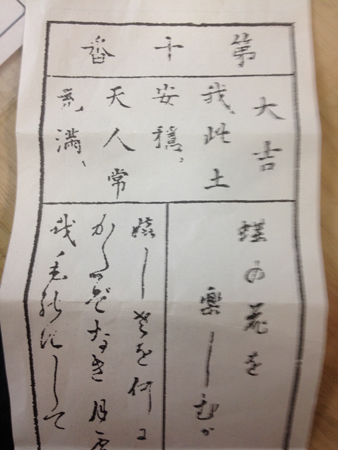 第十番
大吉
我此土
安穩、
天人常
充満、
蝶の花を
楽しむが
嬉しさを何に
なき月
して